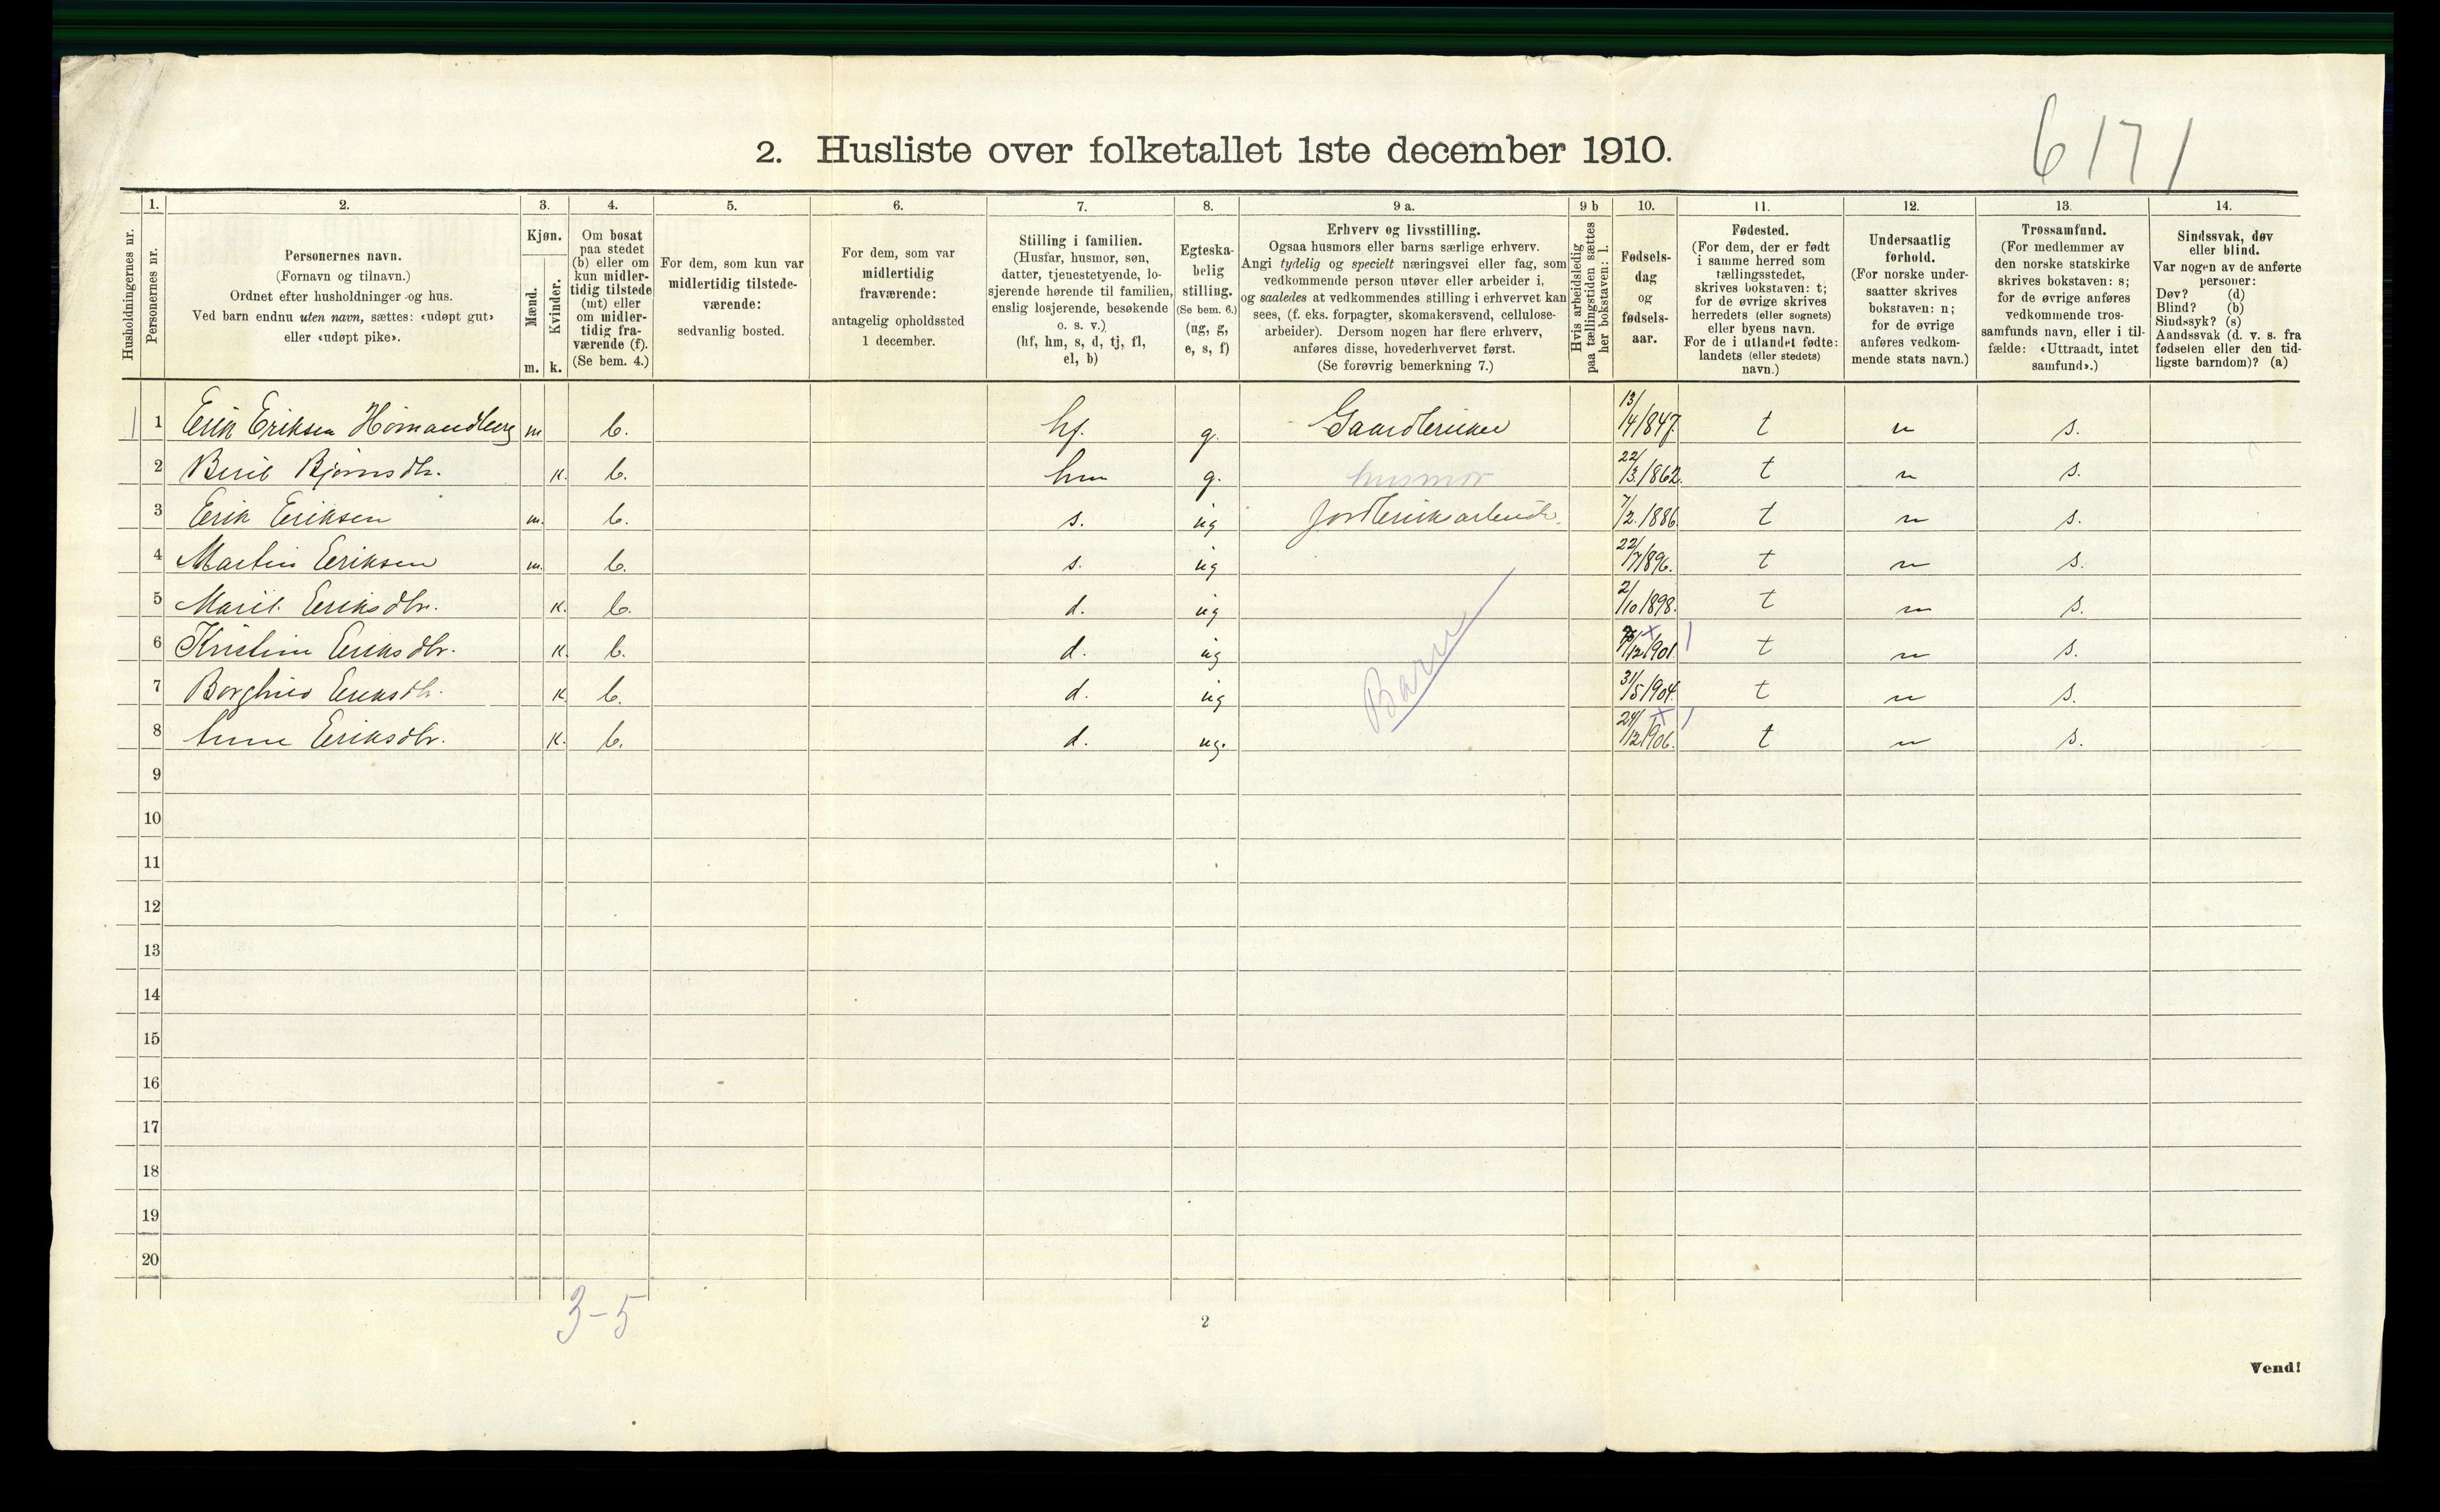 6171
2. Husliste over folketallet 1ste december 1910.
Husholdningernes nr.
1.
Personernes nr.
2.
Personernes navn.
(Fornavn og tilnavn.)
Ordnet efter husholdninger og hus.
Ved barn endnu uten navn, sættes: «udøpt gut»
eller «udøpt pike».
3.
Kjøn.
Mænd.
Kvinder.
m. k.
4.
Om bosat
paa stedet
(b) eller om
kun midler-
tidig tilstede
(mt) eller
om midler-
tidig fra-
værende (f).
(Se bem. 4.)
5.
For dem, som kun var
midlertidig tilstede-
værende:
sedvanlig bosted.
6.
For dem, som var
midlertidig
fraværende:
antagelig opholdssted
1 december.
7.
Stilling i familien.
(Husfar, husmor, søn,
datter, tjenestetyende, lo-
sjerende hørende til familien,
enslig losjerende, besøkende
o. s. v.)
(hf, hm, s, d, tj, fl,
el, b)
8.
Egteska-
belig
stilling.
(Se bem. 6.)
(ug, g,
e, s, f)
9 a.
Erhverv og livsstilling.
Ogsaa husmors eller barns særlige erhverv.
Angi tydelig og specielt næringsvei eller fag, som
vedkommende person utøver eller arbeider i,
og saaledes at vedkommendes stilling i erhvervet kan
sees, (f. eks. forpagter, skomakersvend, cellulose-
arbeider). Dersom nogen har flere erhverv,
anføres disse, hovederhvervet først.
(Se forøvrig bemerkning 7.)
9 b
Hvis arbeidsledig
paa tællingstiden sættes
her bokstaven: l.
10.
Fødsels-
dag
og
fødsels-
aar.
11.
Fødested.
(For dem, der er født
i samme herred som
tællingsstedet,
skrives bokstaven: t;
for de øvrige skrives
herredets (eller sognets)
eller byens navn.
For de i utlandet fødte:
landets (eller stedets)
navn.)
12.
Undersaatlig
forhold.
(For norske under-
saatter skrives
bokstaven: n;
for de øvrige
anføres vedkom-
mende stats navn.)
13.
Trossamfund.
(For medlemmer av
den norske statskirke
skrives bokstaven: s;
for de øvrige anføres
vedkommende tros-
samfunds navn, eller i til-
fælde: «Uttraadt, intet
samfund».)
14.
Sindssvak, døv
eller blind.
Var nogen av de anførte
personer:
Døv? (d)
Blind? (b)
Sindssyk? (s)
Aandssvak (d. v. s. fra
fødselen eller den tid-
ligste barndom)? (a)
1 1 Erik Eriksen Hømandberg m b. hf. g. Gaardbruker 13/4 1847. t n s.
2 Berit Bjørnsdtr. k. b. hm g. husmor 22/3. 1862. t n s.
3 Erik Eriksen m. b. s. ug Jordbruksarbeider. 7/2. 1886 t n s.
4 Martin Eriksen m. b. s. ug 22/7 1896. t n s.
5 Marit Eriksdtr. k. b. d. ug 2/10 1898. t n s.
6 Kristine Eriksdtr. k. b. d. ug /12 1901 t n s.
7 Borghild Eriksdtr. k. b. d. ug 31/5 1904. t n s.
8 Anne Eriksdtr. k. b. d. ug. 24/12 1906. t n s.
Barn
9
10
11
12
13
14
15
16
17
18
19
20
3-5
2
Vend!